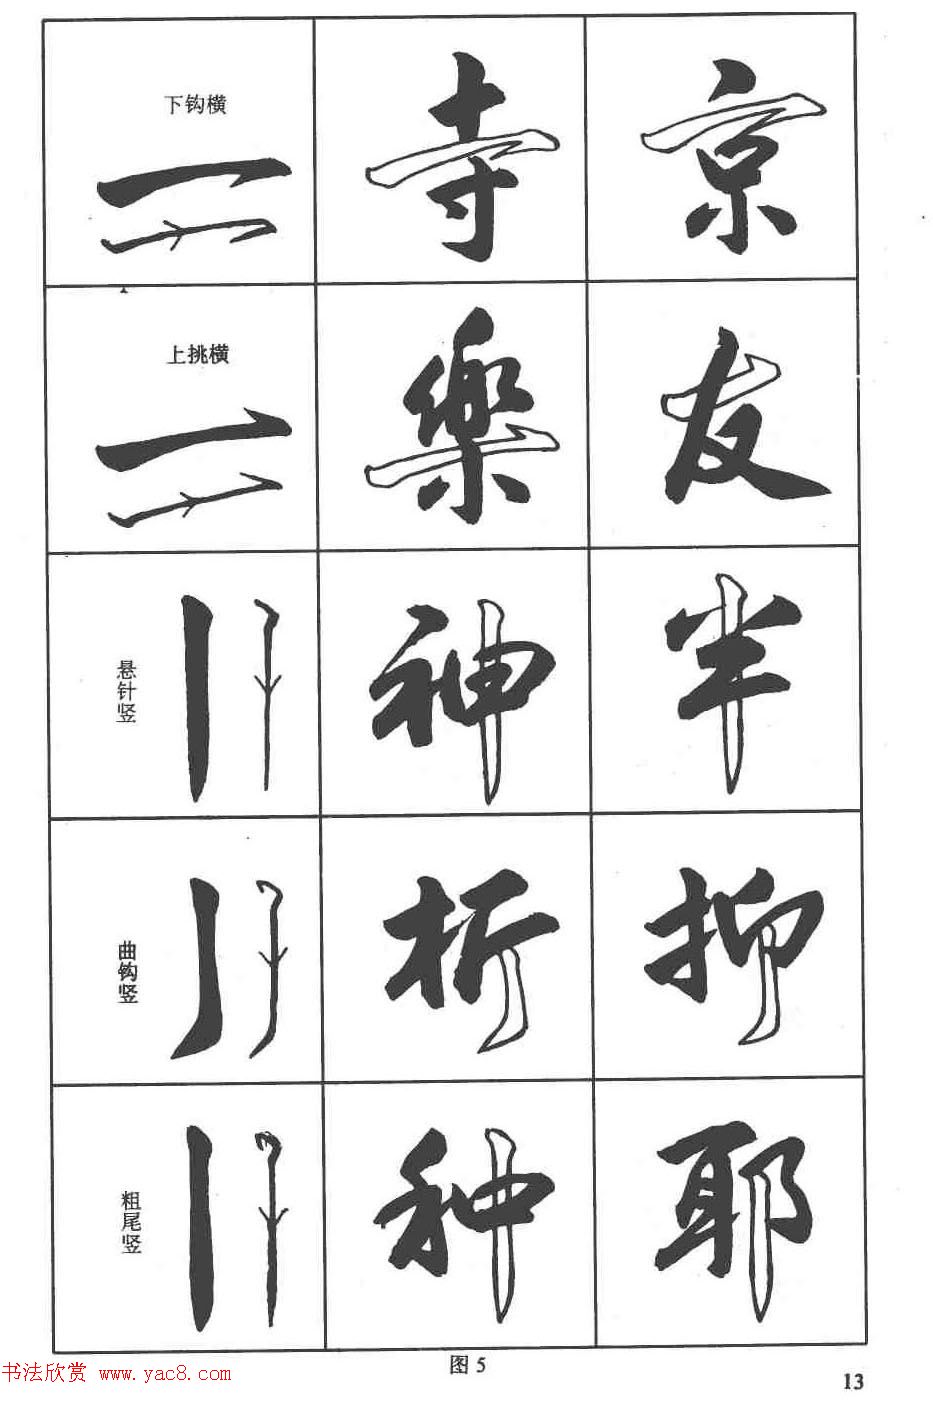 下钩横 寺 京
上挑横 樂 友
悬针竖 神 半
曲钩竖 析 抑
粗尾竖 种 耶
图 5
书法欣赏 www.yac8.com
13